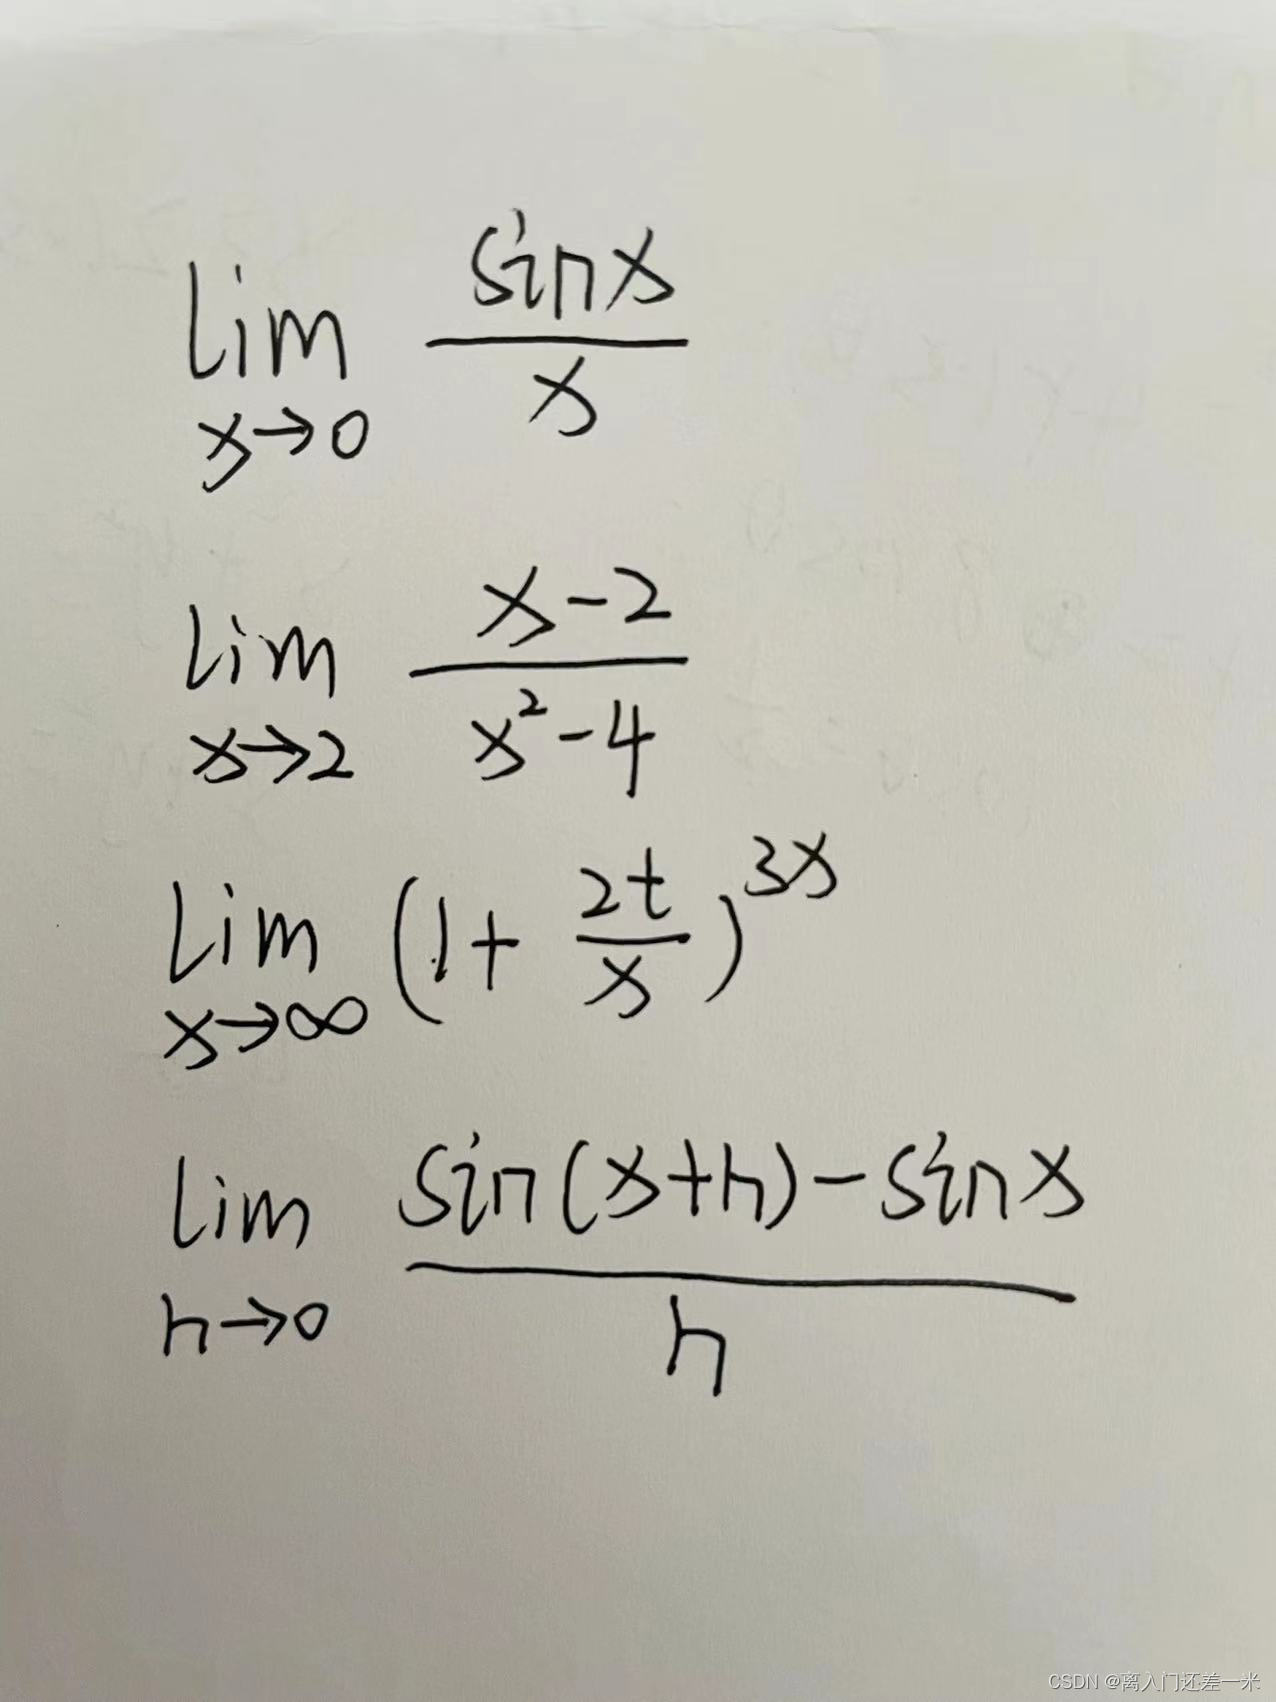 lim x→0 sinx/x
lim x→2 (x-2)/(x²-4)
lim x→∞ (1+2t/x)^3x
lim h→0 (sin(x+h)-sinx)/h
CSDN @离入门还差一米